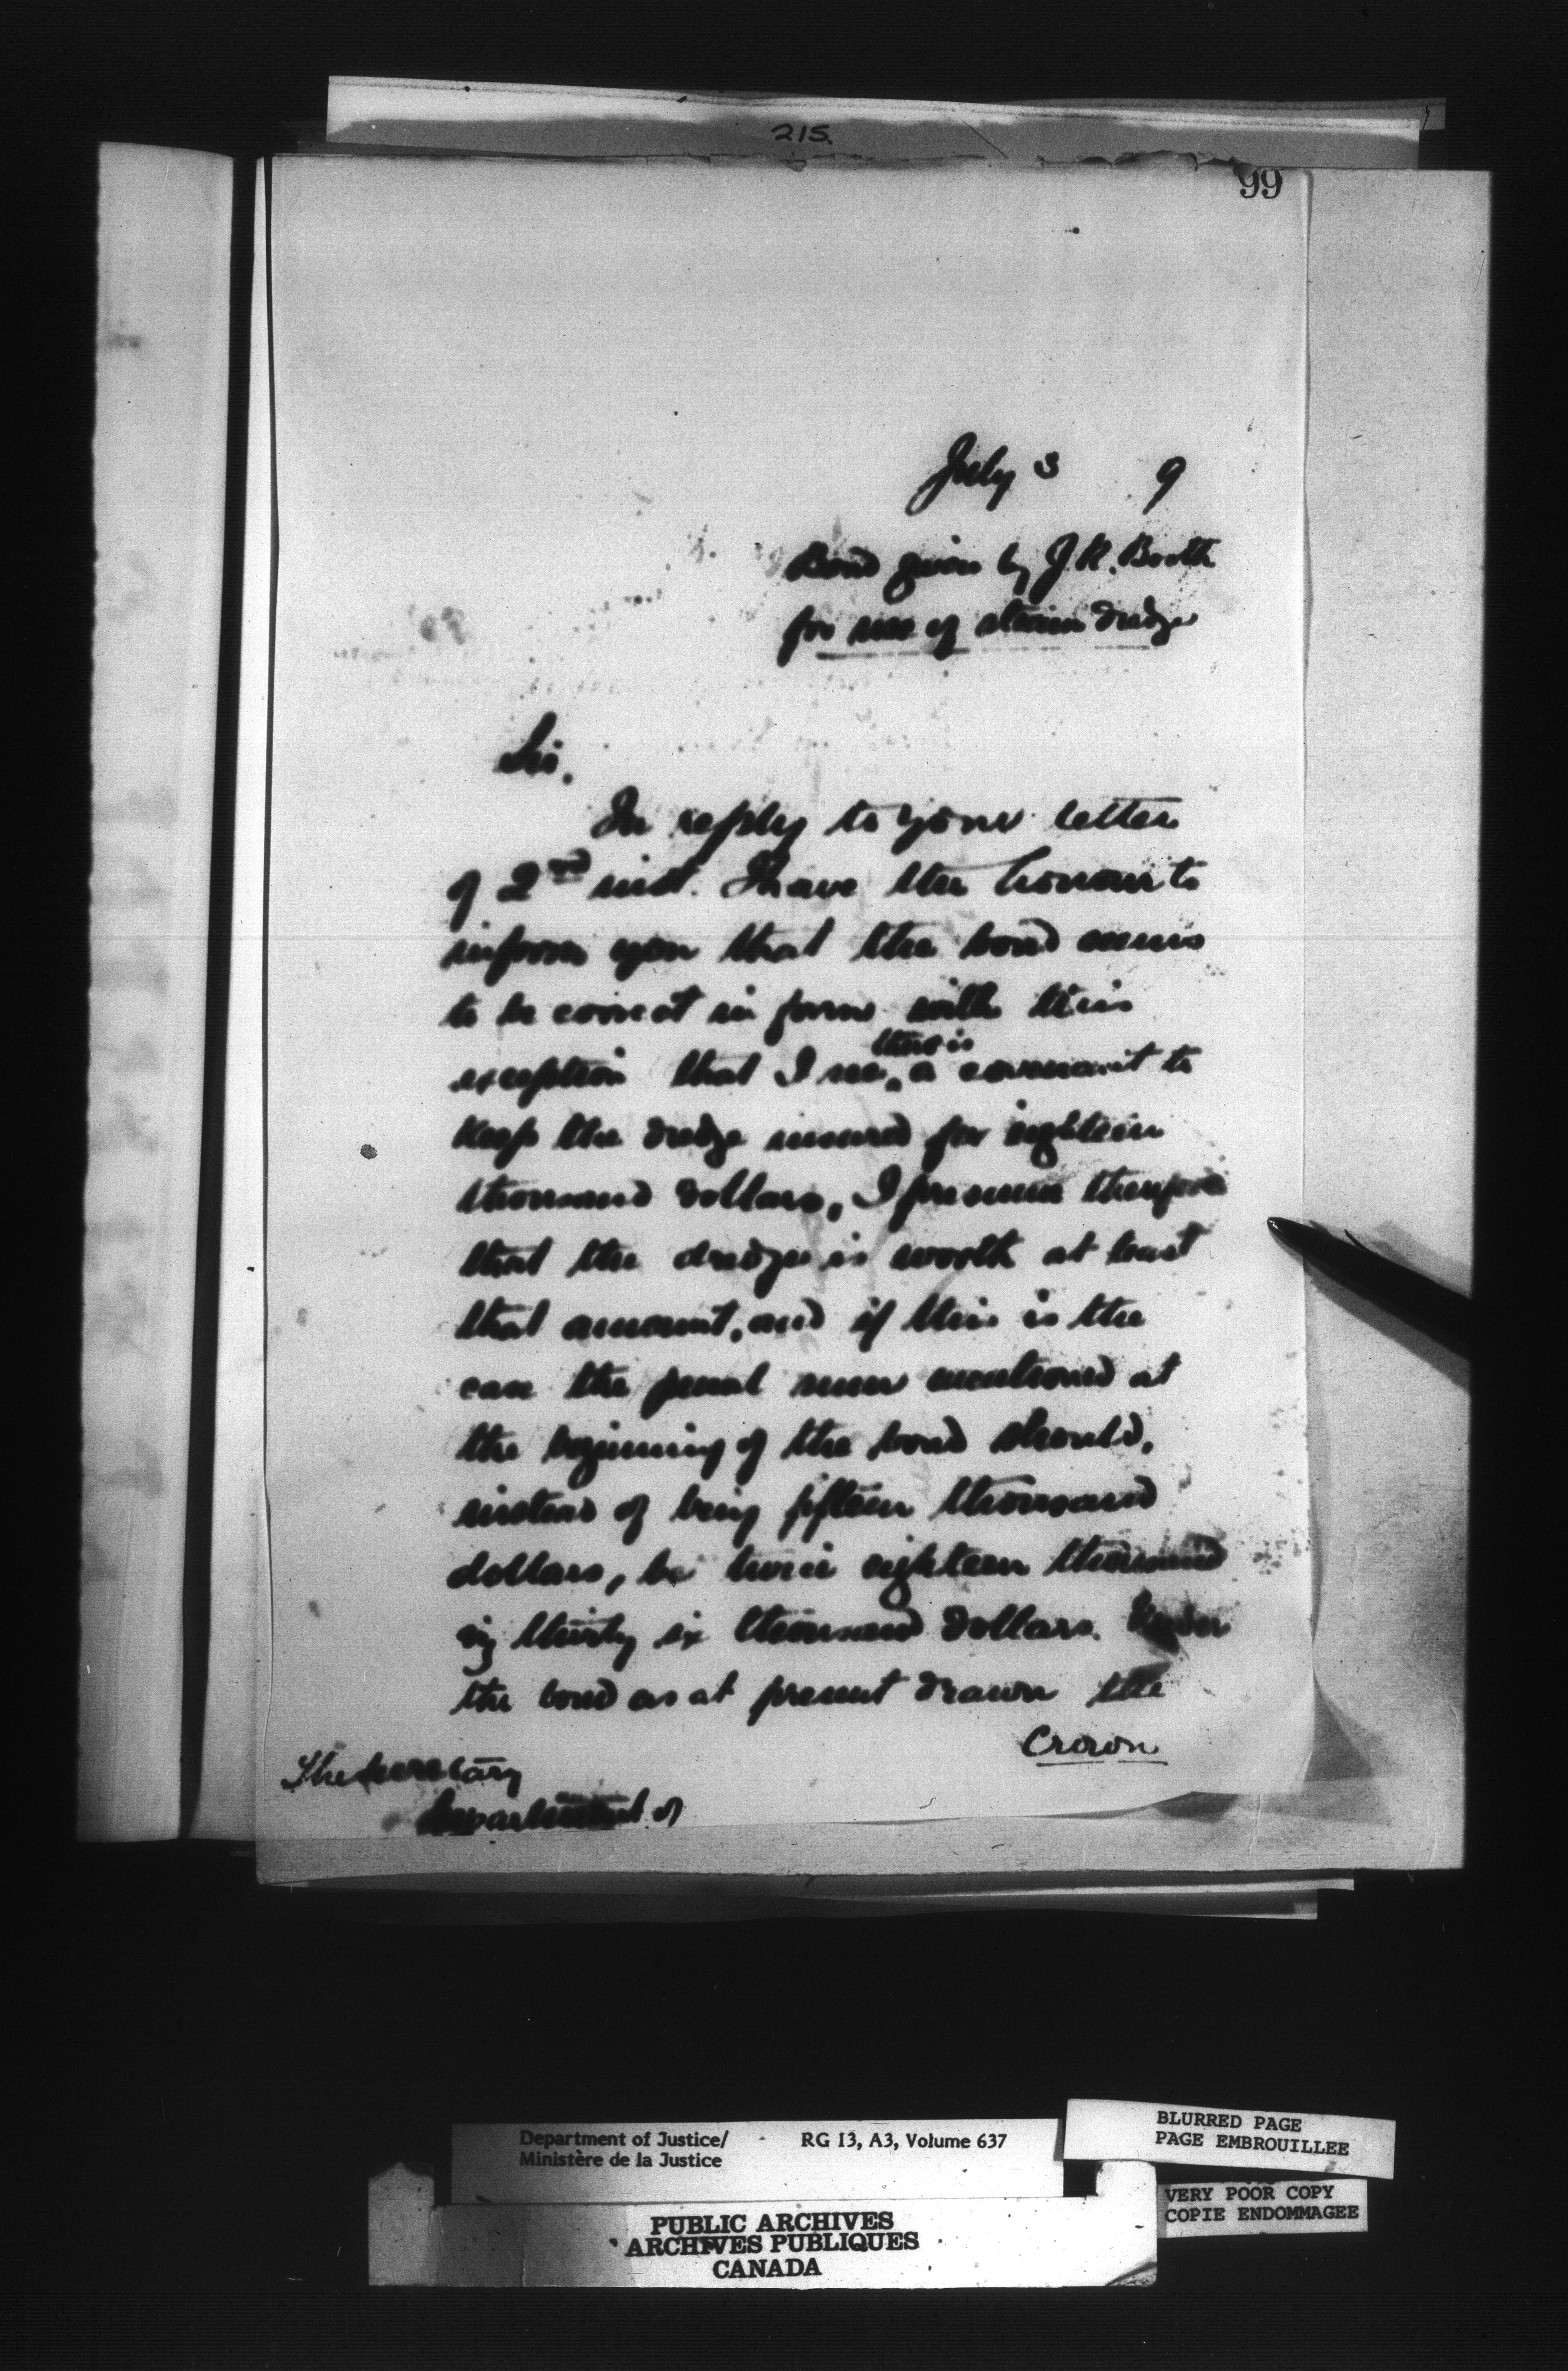 215.
99
July 3 9
Bond given by J.R. Booth
for use of steam dredge
Sir,
In reply to your letter
of 2nd inst. I have the honour to
inform you that the bond seems
to be correct in form with this
exception that I see there is a covenant to
keep the dredge insured for eighteen
thousand dollars, I presume therefore
that the dredge is worth at least
that amount, and if this is the
case the penal sum mentioned at
the beginning of the bond should,
instead of being fifteen thousand
dollars, be twice eighteen thousand
viz thirty six thousand dollars. Under
the bond as at present drawn the
Crown
The Secretary
Department of
Department of Justice/ RG 13, A3, Volume 637
Ministère de la Justice
BLURRED PAGE
PAGE EMBROUILLEE
VERY POOR COPY
COPIE ENDOMMAGEE
PUBLIC ARCHIVES
ARCHIVES PUBLIQUES
CANADA